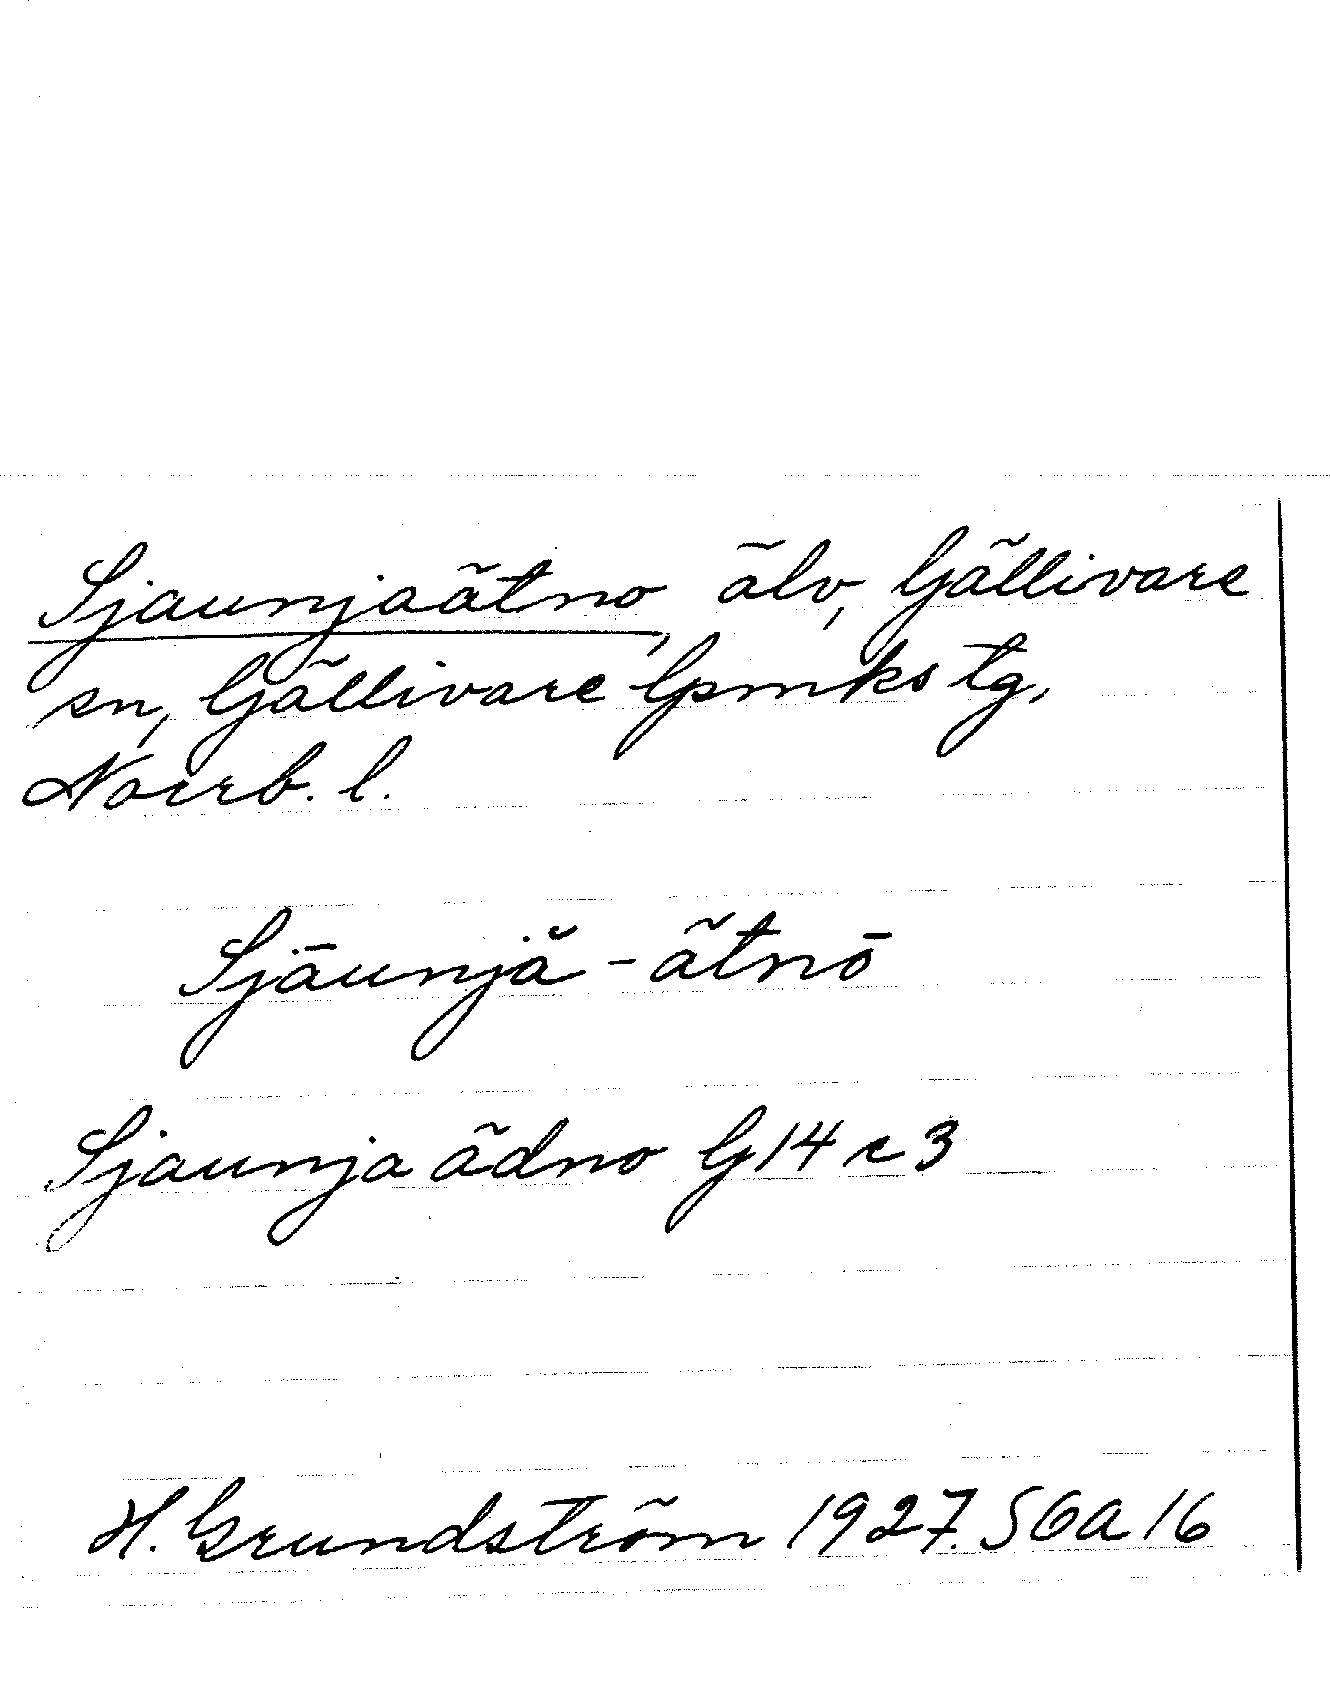 Sjaunjaätno, älv, Gällivare
sn, Gällivare lpmks tg,
Norrb. l.
Sjāunjă - ätnō
Sjaunja ädno G14 c 3
H. Grundström 1927. SOA 16